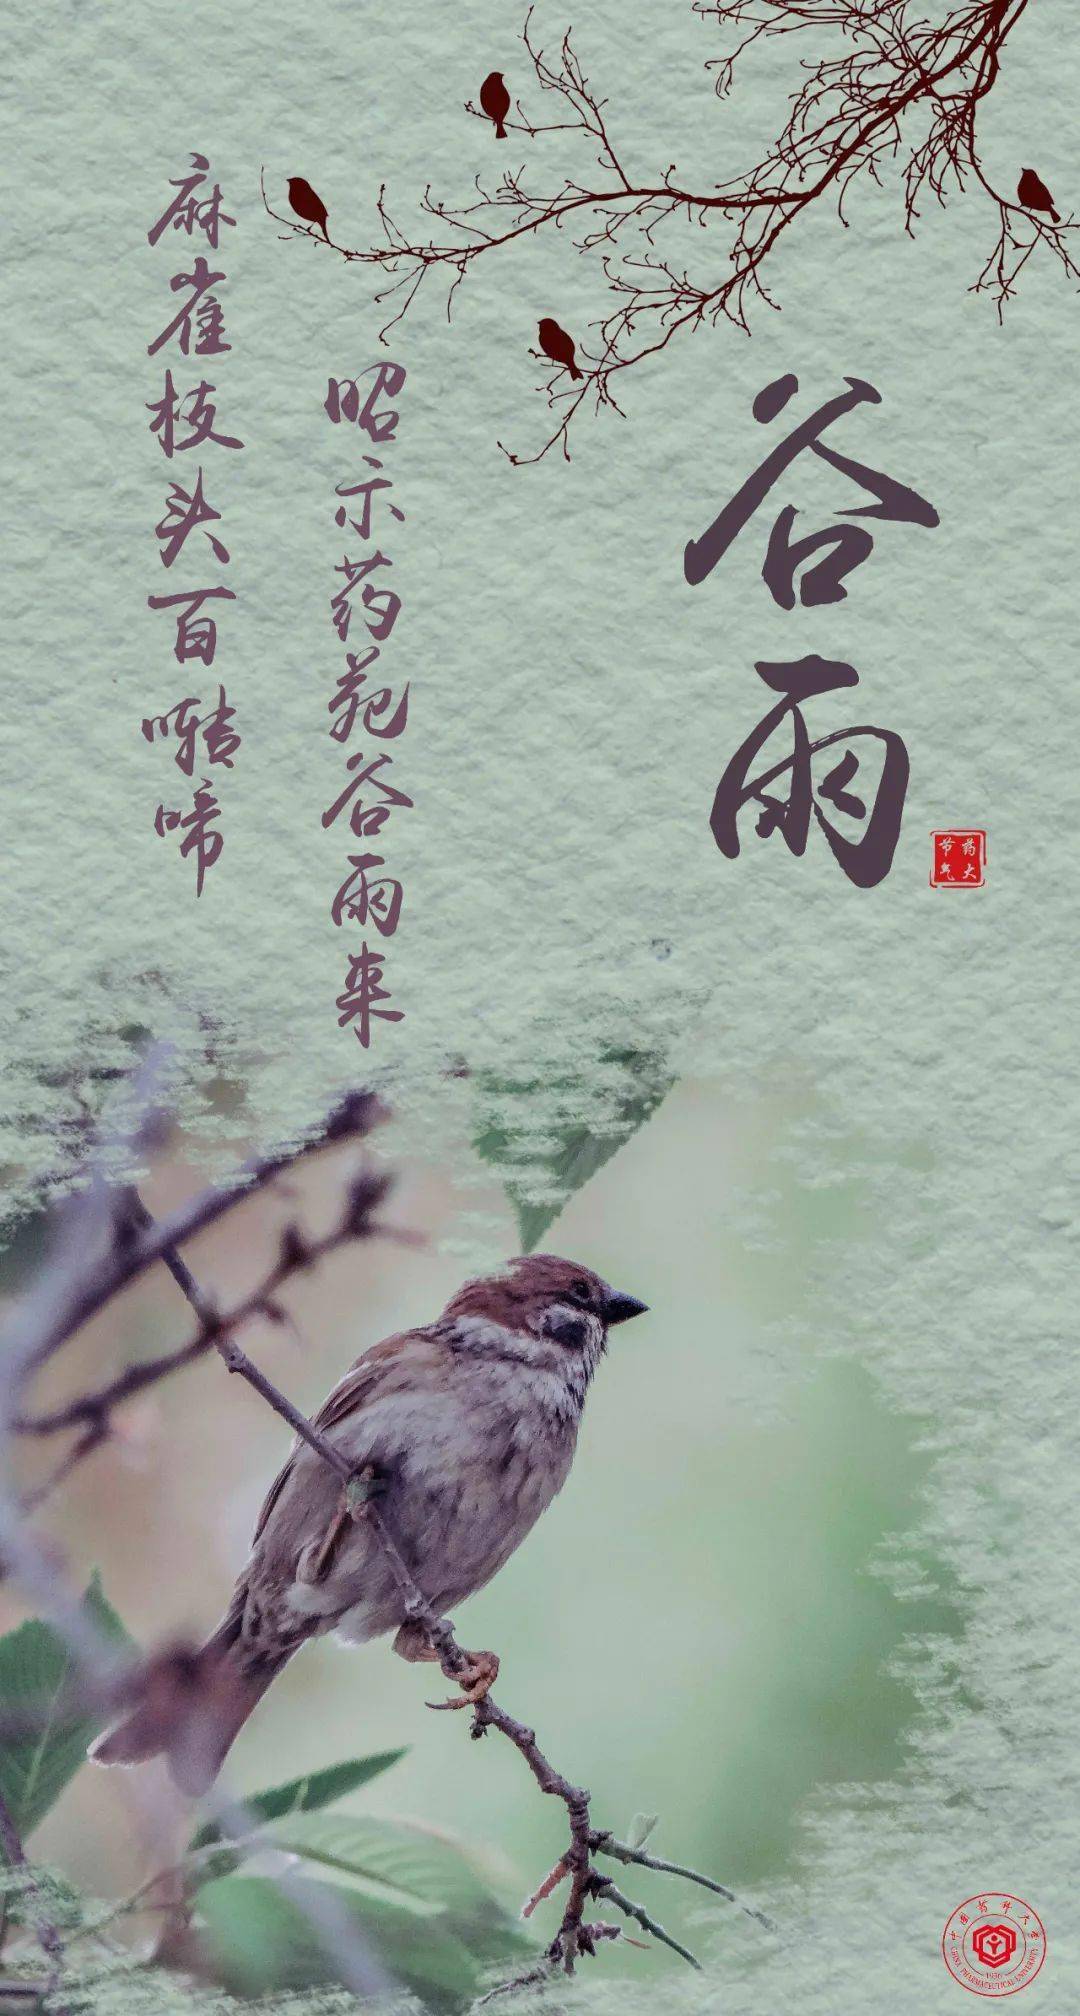 谷雨
药大
节气
昭示药苑谷雨来
麻雀枝头百啭啼
中国药科大学
1936
CHINA PHARMACEUTICAL UNIVERSITY